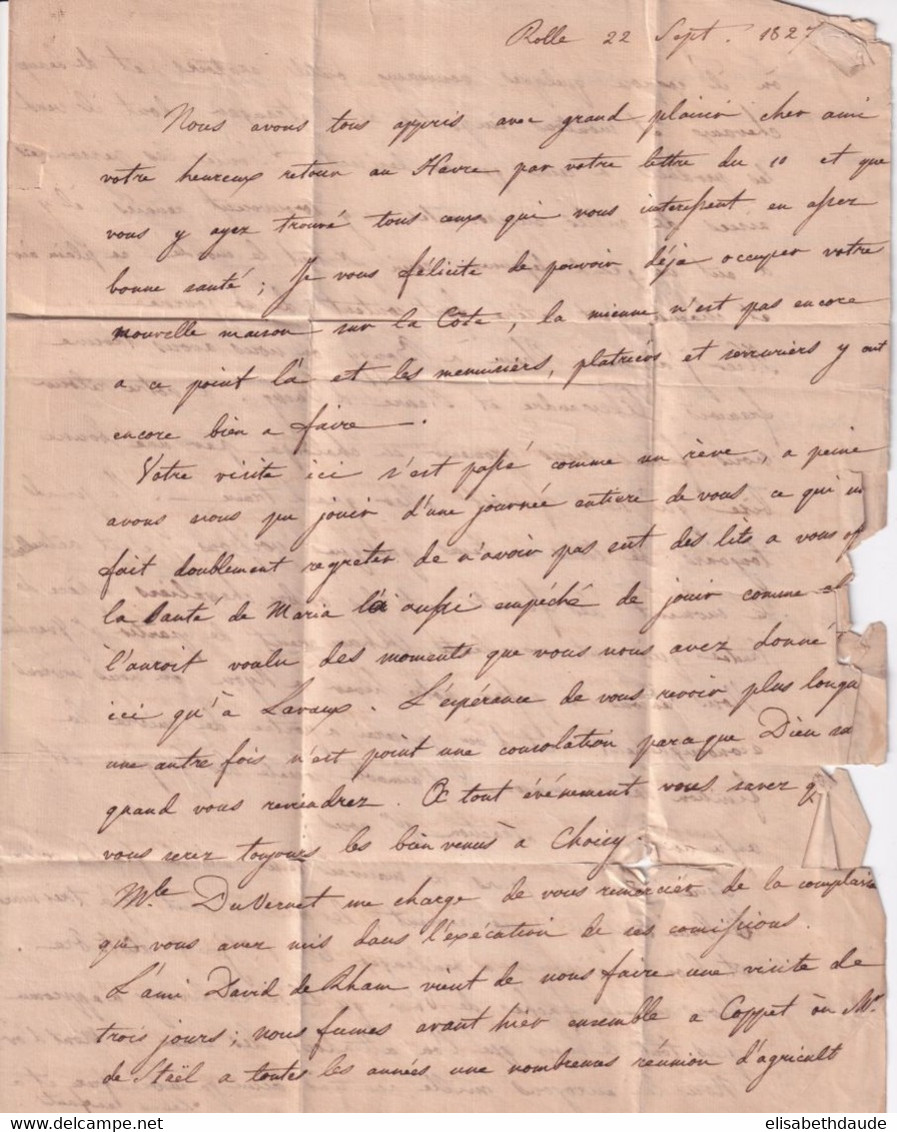 Rolle 22 Sept. 1827
Nous avons tous appris avec grand plaisir cher ami
votre heureux retour au Havre par votre lettre du 10 et que
vous y ayez trouvé tous ceux qui vous interessent en assez
bonne santé ; Je vous félicite de pouvoir déjà occuper votre
nouvelle maison sur la Côte, la mienne n'est pas encore
a ce point là et les menuisiers, platriers et serruriers y ont
encore bien a faire.
Votre visite ici s'est passé comme un rêve, a peine
avons nous pu jouir d'une journée entiere de vous ce qui m
fait doublement regreter de n'avoir pas eut des lits a vous of
la Santé de Maria l'a aussi empéché de jouir comme el
l'auroit voulu des moments que vous nous avez donné
ici qu'à Lavaux. L'espérance de vous revoir plus longu
une autre fois n'est point une consolation parceque Dieu sa
quand vous reviendrez. A tout événement vous savez q
vous serez toujours les bien venus à Choisy.
Mlle DuVernet me charge de vous remercier de la complais
que vous avez mis dans l'exécution de ses comissions.
L'ami David de Rham vient de nous faire une visite de
trois jours ; nous fumes avant hier ensemble a Coppet ou Mr
de Steël a toutes les années une nombreuse réunion d'agricult
elisabethdaude